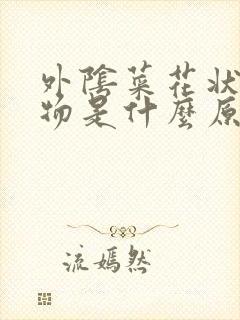 外陰菜花狀
物是什麼原
流嫣然